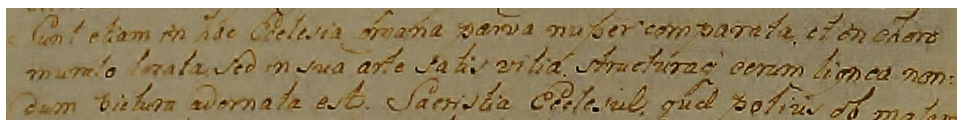 Sunt etiam in hac Ecclesia organa parva nuper comparata, et in choro
murato locata, sed in sua arte satis vitia, structuraq earum lignea non-
dum pictura adornata est. Sacristia Ecclesiæ, quæ potius ob malam